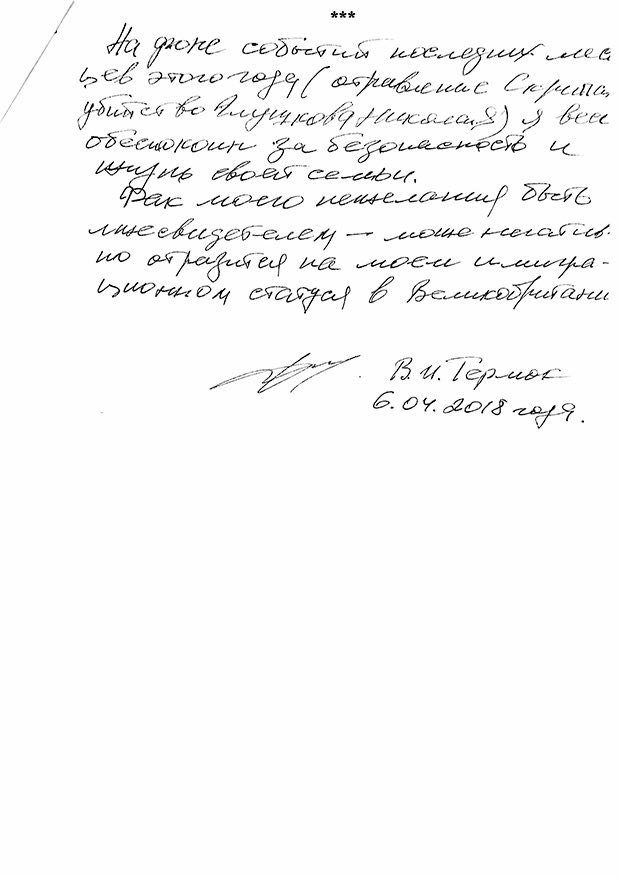 ***
На фоне событий последних меся
цев этого года (отравление Скрипал
убийство Глушкова Николая) я весь
обеспокоин за безопасность и
жизнь своей семьи.
Фак моего нежелания быть
лжесвидетелем — може негатив-
но отразится на моем имигра-
ционном статуся в Великобритани
В.И. Гермок
6.04.2018 года.